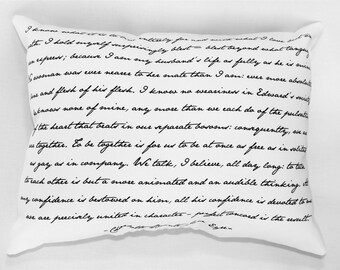 I know what it is to live entirely for and with what I love
I hold myself supremely blest — blest beyond what
express; because I am my husband's life as fully as he is mine
woman was ever nearer to her mate than I am: ever more
and flesh of his flesh. I know no weariness in Edward's
knows none of mine, any more than we each do of the
of the heart that beats in our separate bosoms: consequently, we
together. To be together is for us to be at once as free as in
as gay as in company. We talk, I believe, all day long: to talk
to each other is but a more animated and an audible thinking.
my confidence is bestowed on him, all his confidence is devoted to
we are precisely suited in character – perfect concord is the result.
Eyre